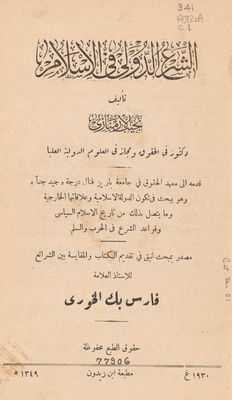 341
A732sA
C.1
الشرع الدولي في الإسلام
تأليف
نجيب الأرمنازي
دكتور في الحقوق ومجاز في العلوم الدولية العليا
قدمه الى معهد الحقوق في جامعة باريز فنال درجة « جيد جداً »
وهو يبحث في تكون الدولة الاسلامية وعلاقاتها الخارجية
وما يتصل بذلك من تاريخ الاسلام السياسي
وقواعد الشرع في الحرب والسلم
مصدر ببحث انيق في تقديم الكتاب والمقايسة بين الشرائع
للاستاذ العلامة
فارس بك الخوري
حقوق الطبع محفوظة
77906
١٩٣٠ غ
مطبعة ابن زيدون
١٣٤٩ هـ